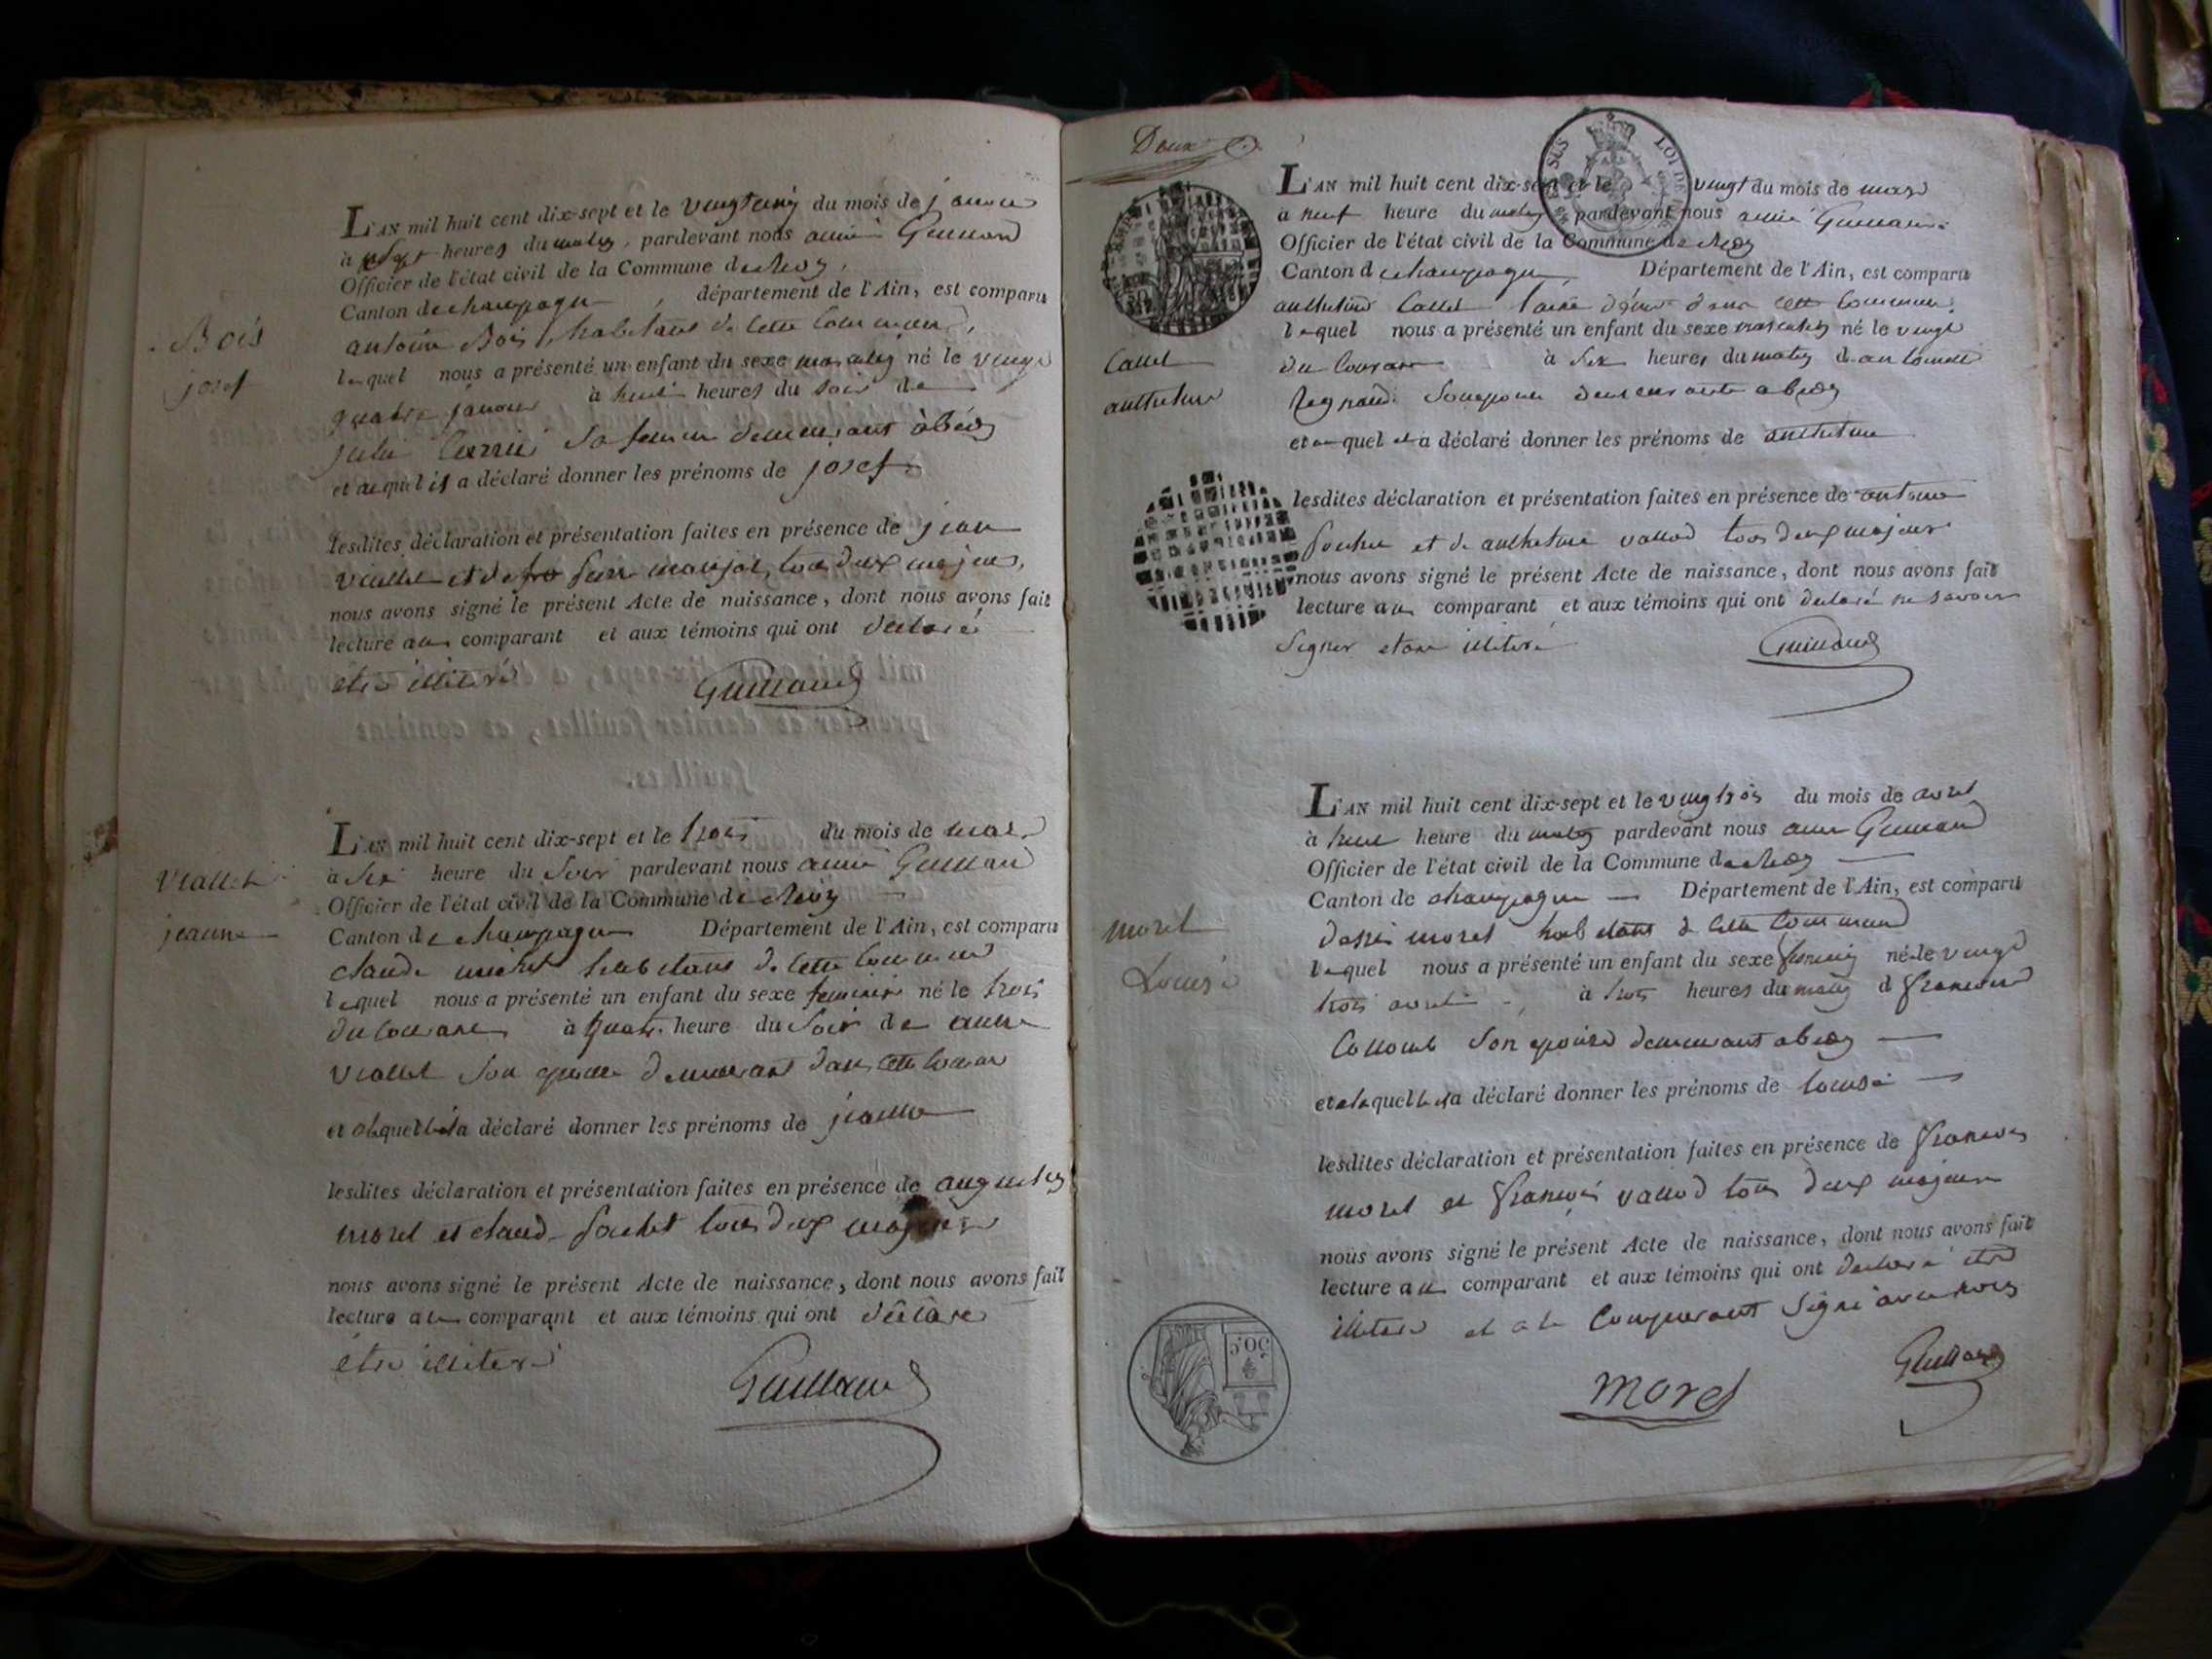 Bois
josef
L'AN mil huit cent dix-sept et le vingt cinq du mois de
à heures du matin, pardevant nous aimé Guilland
Officier de l'état civil de la Commune de
Canton de champagne, département de l'Ain, est comparu
antoine Bois habitant de cette commune,
lequel nous a présenté un enfant du sexe masculin né le vingt
quatre janvier à huit heures du soir de
julie sa femme demeurant à béon
et auquel il a déclaré donner les prénoms de josef
lesdites déclaration et présentation faites en présence de jean
viallet et de tous deux majeur,
nous avons signé le présent Acte de naissance, dont nous avons fait
lecture au comparant et aux témoins qui ont déclaré
être illiteré
Guilland
viallet
jeanne
L'AN mil huit cent dix-sept et le trois du mois de mars
à six heure du soir pardevant nous aimé Guilland
Officier de l'état civil de la Commune de
Canton de champagne Département de l'Ain, est comparu
claude michel habitant de cette commune
lequel nous a présenté un enfant du sexe feminin né le trois
du courant à quatre heure du soir de anne
viallet son epouse demeurant dans cette
et à laquelle il a déclaré donner les prénoms de jeanne
lesdites déclaration et présentation faites en présence de augustin
morel et claude tous deux majeur
nous avons signé le présent Acte de naissance, dont nous avons fait
lecture au comparant et aux témoins qui ont déclaré
être illiteré
Guilland
Deux
L'AN mil huit cent dix-sept et le vingt du mois de mars
à neuf heure du matin pardevant nous aimé Guilland
Officier de l'état civil de la Commune de
Canton de champagne Département de l'Ain, est comparu
anthelme Callet dans cette commune
lequel nous a présenté un enfant du sexe masculin né le vingt
du courant à six heures du matin d antoinette
son epouse demeurante a béon
et auquel il a déclaré donner les prénoms de anthelme
Callet
anthelme
lesdites déclaration et présentation faites en présence de antoine
et de anthelme vallod tous deux majeur
nous avons signé le présent Acte de naissance, dont nous avons fait
lecture au comparant et aux témoins qui ont declaré ne savoir
signer etant illiteré
Guilland
L'AN mil huit cent dix-sept et le vingt trois du mois de avril
à heure du matin pardevant nous aimé Guilland
Officier de l'état civil de la Commune de
Canton de champagne Département de l'Ain, est comparu
morel habitant de cette commune
lequel nous a présenté un enfant du sexe feminin né le vingt
trois avril à trois heures du matin d
Collomb son epouse demeurant a béon
et à laquelle il a déclaré donner les prénoms de Louise
morel
Louise
lesdites déclaration et présentation faites en présence de francois
morel et francois vallod tous deux majeur
nous avons signé le présent Acte de naissance, dont nous avons fait
lecture au comparant et aux témoins qui ont declaré etre
illiteré et a le comparant signé avec nous
morel
Guilland
50 c.